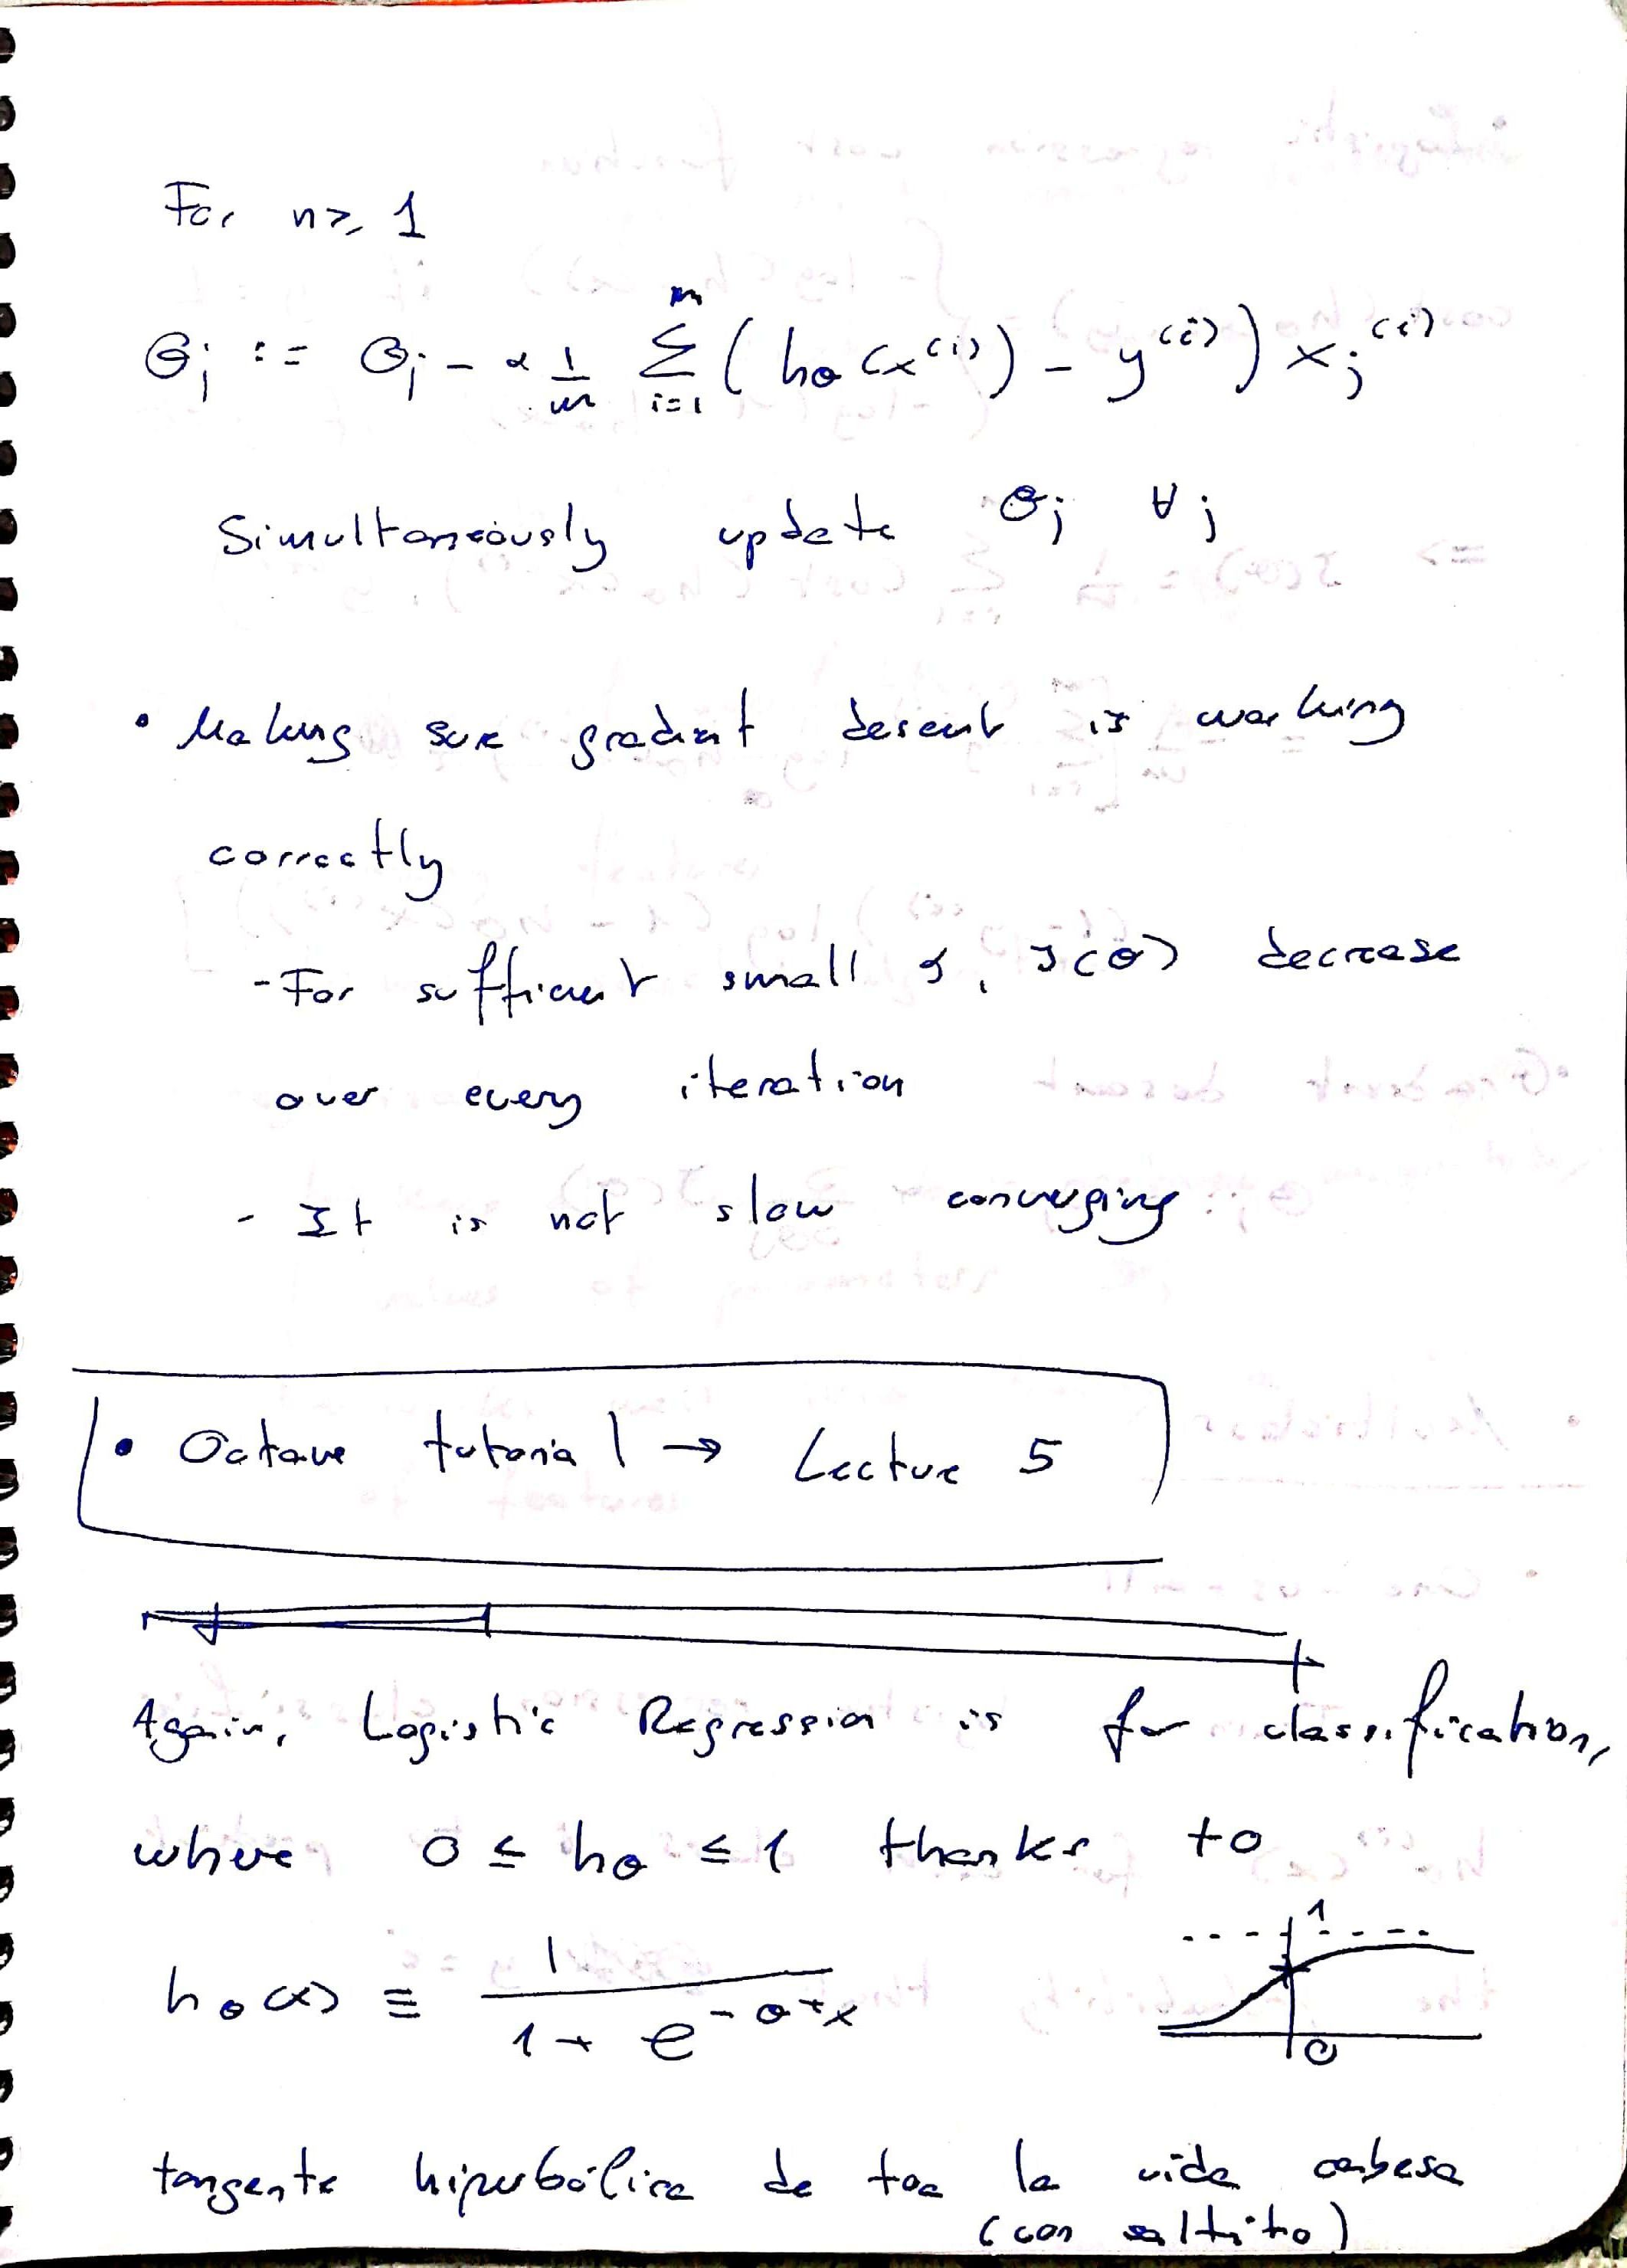 For n ≥ 1
θj := θj - α 1/m Σ_{i=1}^{m} (hθ(x^(i)) - y^(i)) xj^(i)
Simultaneously update θj ∀j
• Making sure gradient descent is working
correctly
- For sufficient small α, J(θ) decrease
over every iteration
- It is not slow converging
• Octave tutorial → Lecture 5
Again, Logistic Regression is for classification,
where 0 ≤ hθ ≤ 1 thanks to
hθ(x) ≡ 1 / (1 + e^(-θ^T x))
1
0
tangente hiperbólica de toa la vida cabesa
(con saltito)